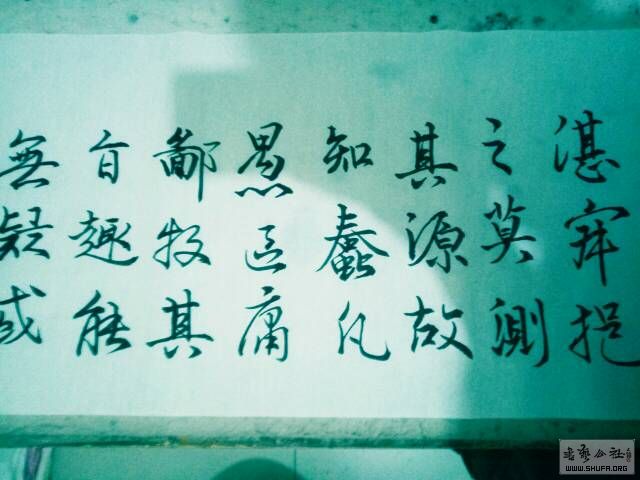 湛寂挹
之莫測
其源故
知蠢凡
愚區庸
鄙投其
旨趣能
無疑惑
書藝公社
WWW.SHUFA.ORG